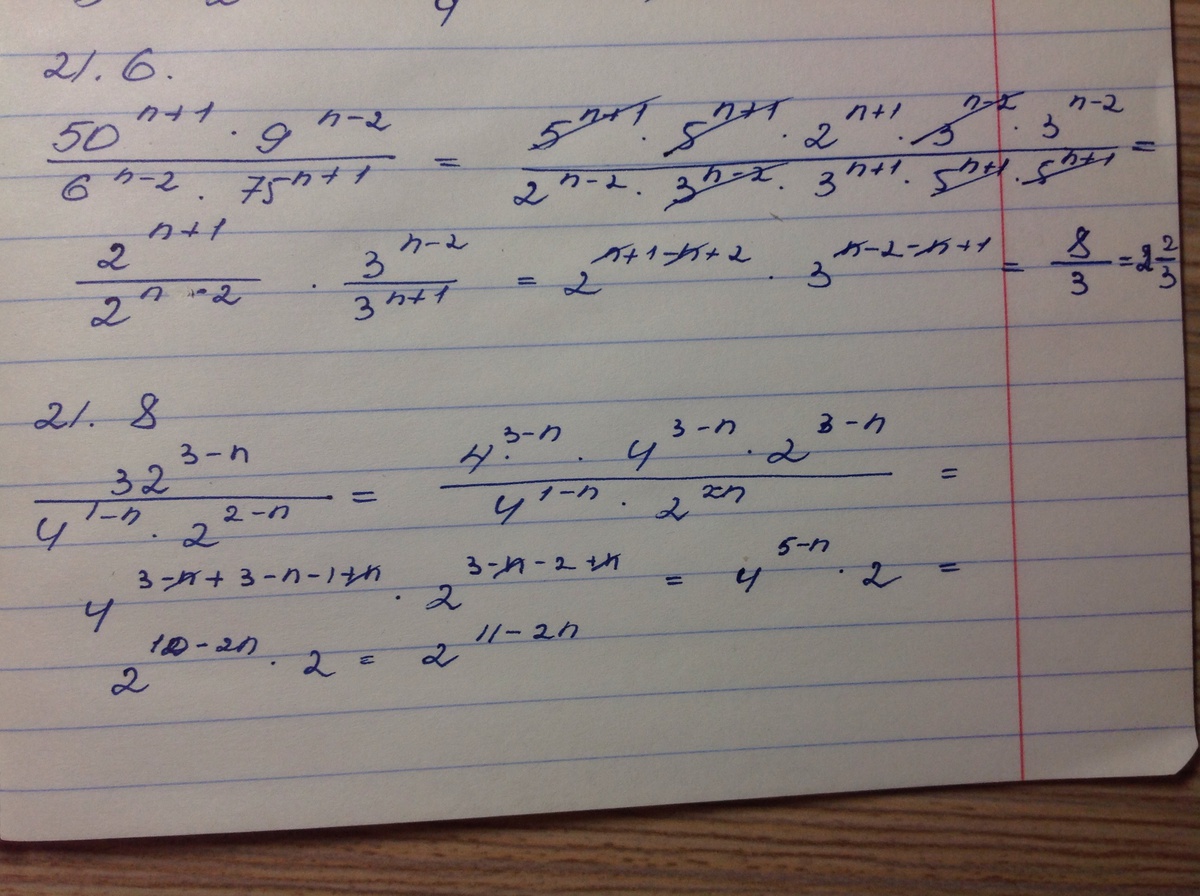 21. 6.
50^{n+1} · 9^{n-2} / 6^{n-2} · 75^{n+1} = 5^{n+1} · 5^{n+1} · 2^{n+1} · 3^{n-2} · 3^{n-2} / 2^{n-2} · 3^{n-2} · 3^{n+1} · 5^{n+1} · 5^{n+1} =
2^{n+1} / 2^{n-2} · 3^{n-2} / 3^{n+1} = 2^{n+1-n+2} · 3^{n-2-n+1} = 8/3 = 2 2/3
21. 8
32^{3-n} / 4^{1-n} · 2^{2-n} = 4^{3-n} · 4^{3-n} · 2^{3-n} / 4^{1-n} · 2^{2n} =
4^{3-n+3-n-1+n} · 2^{3-n-2+n} = 4^{5-n} · 2 =
2^{10-2n} · 2 = 2^{11-2n}